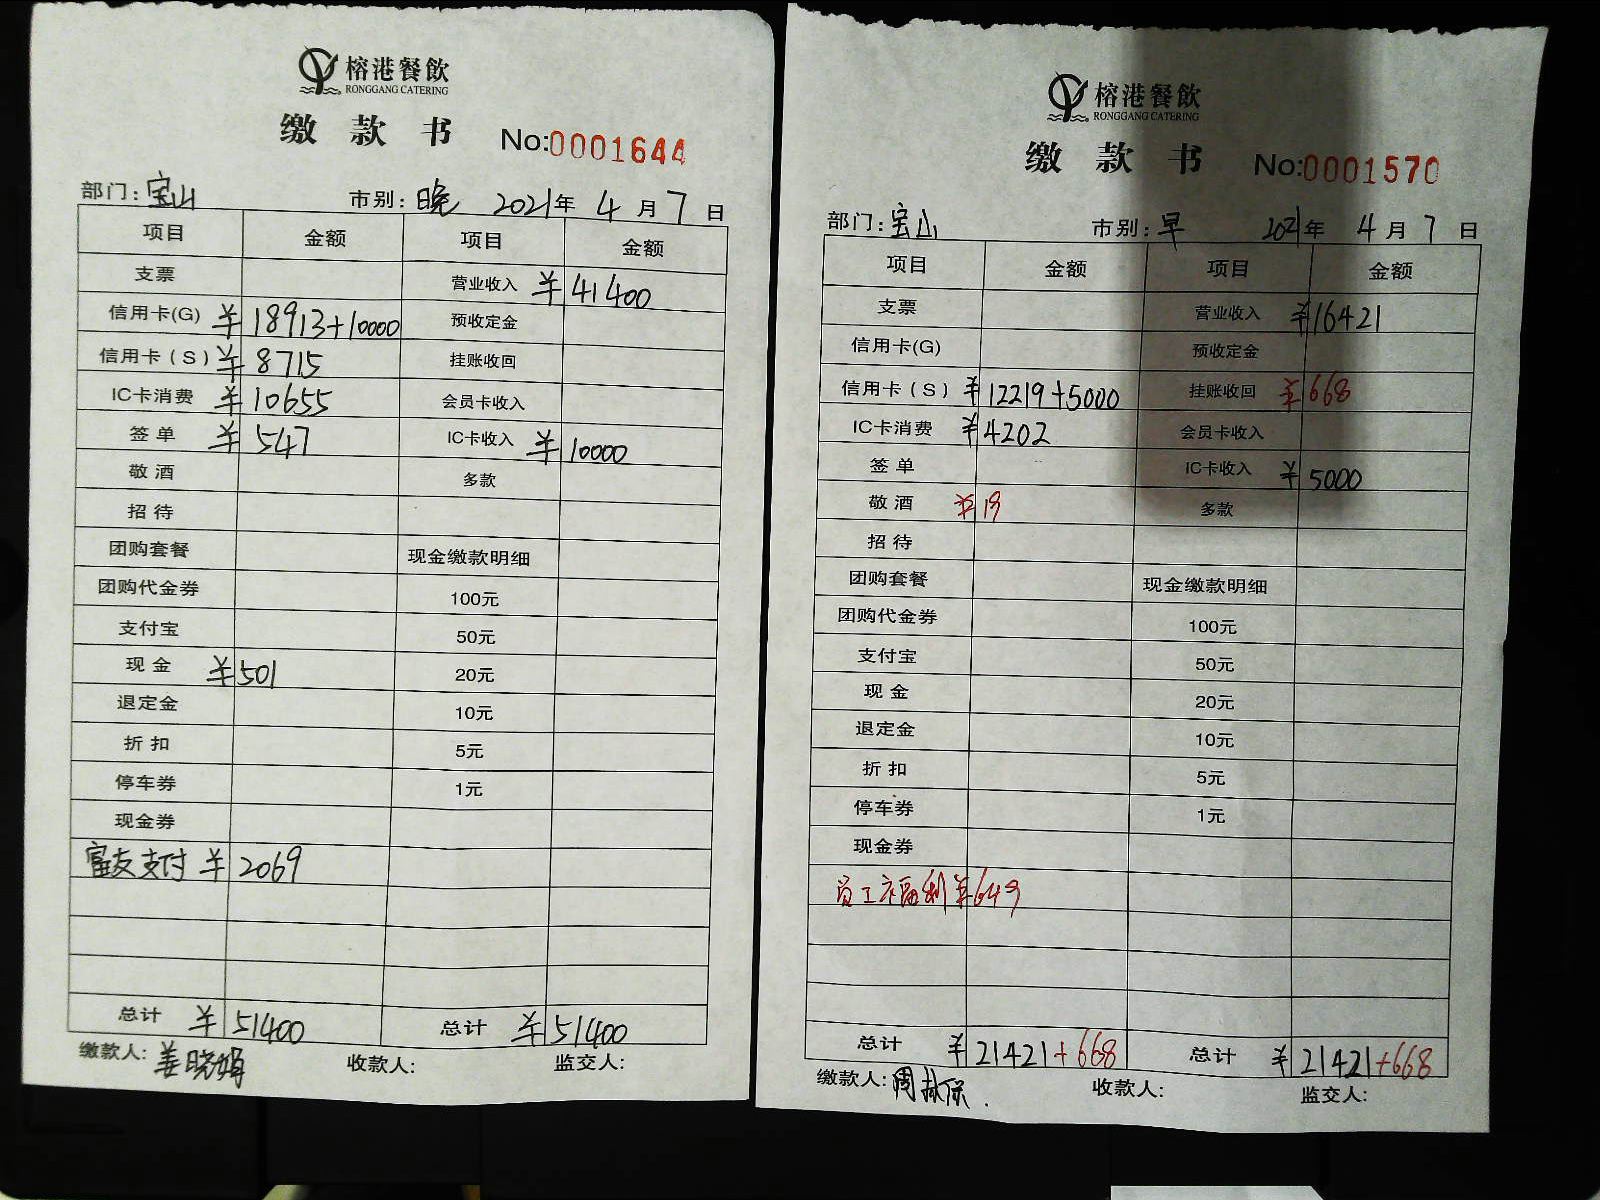 榕港餐飲
RONGGANG CATERING
缴款书 No:0001644
部门:宝山 市别:晓 2021年4月7日
项目 金额 项目 金额
支票 营业收入 ¥41400
信用卡(G) ¥18913+10000 预收定金
信用卡(S) ¥8715 挂账收回
IC卡消费 ¥10655 会员卡收入
签单 ¥547 IC卡收入 ¥10000
敬酒 多款
招待
团购套餐 现金缴款明细
团购代金券 100元
支付宝 50元
现金 ¥501 20元
退定金 10元
折扣 5元
停车券 1元
现金券
富友支付 ¥2069
总计 ¥51400 总计 ¥51400
缴款人:姜晓娟 收款人: 监交人:
榕港餐飲
RONGGANG CATERING
缴款书 No:0001570
部门:宝山 市别:早 2021年4月7日
项目 金额 项目 金额
支票 营业收入 ¥16421
信用卡(G) 预收定金
信用卡(S) ¥12219+5000 挂账收回 ¥668
IC卡消费 ¥4202 会员卡收入
签单 IC卡收入 ¥5000
敬酒 ¥19 多款
招待
团购套餐 现金缴款明细
团购代金券 100元
支付宝 50元
现金 20元
退定金 10元
折扣 5元
停车券 1元
现金券
员工福利 ¥649
总计 ¥21421+668 总计 ¥21421+668
缴款人:周 收款人: 监交人: